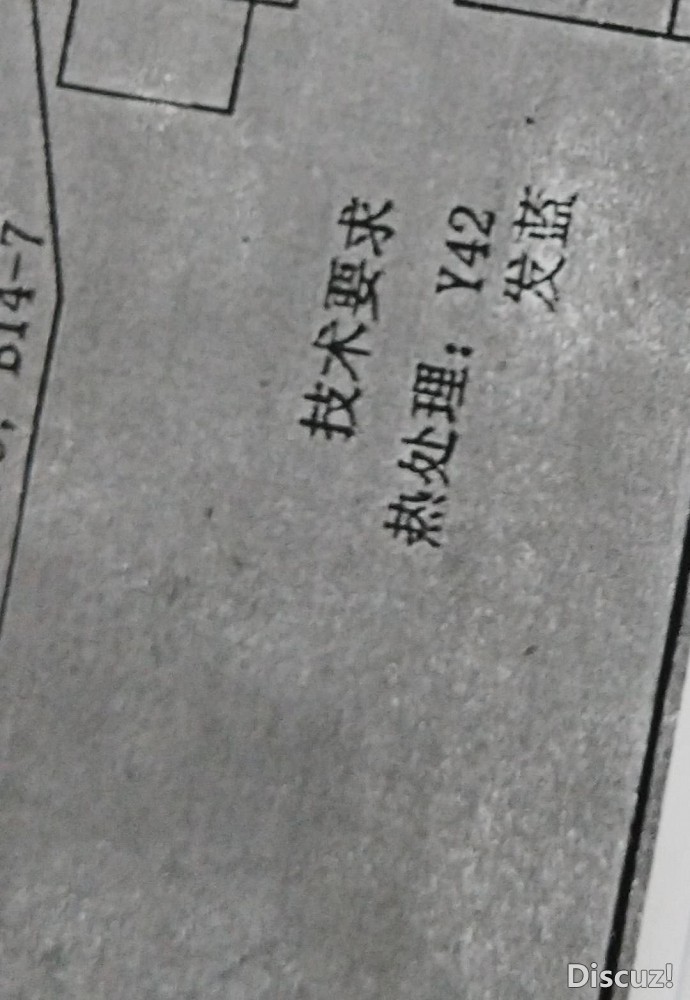 技术要求
热处理：Y42
发蓝
B14-7
Discuz!